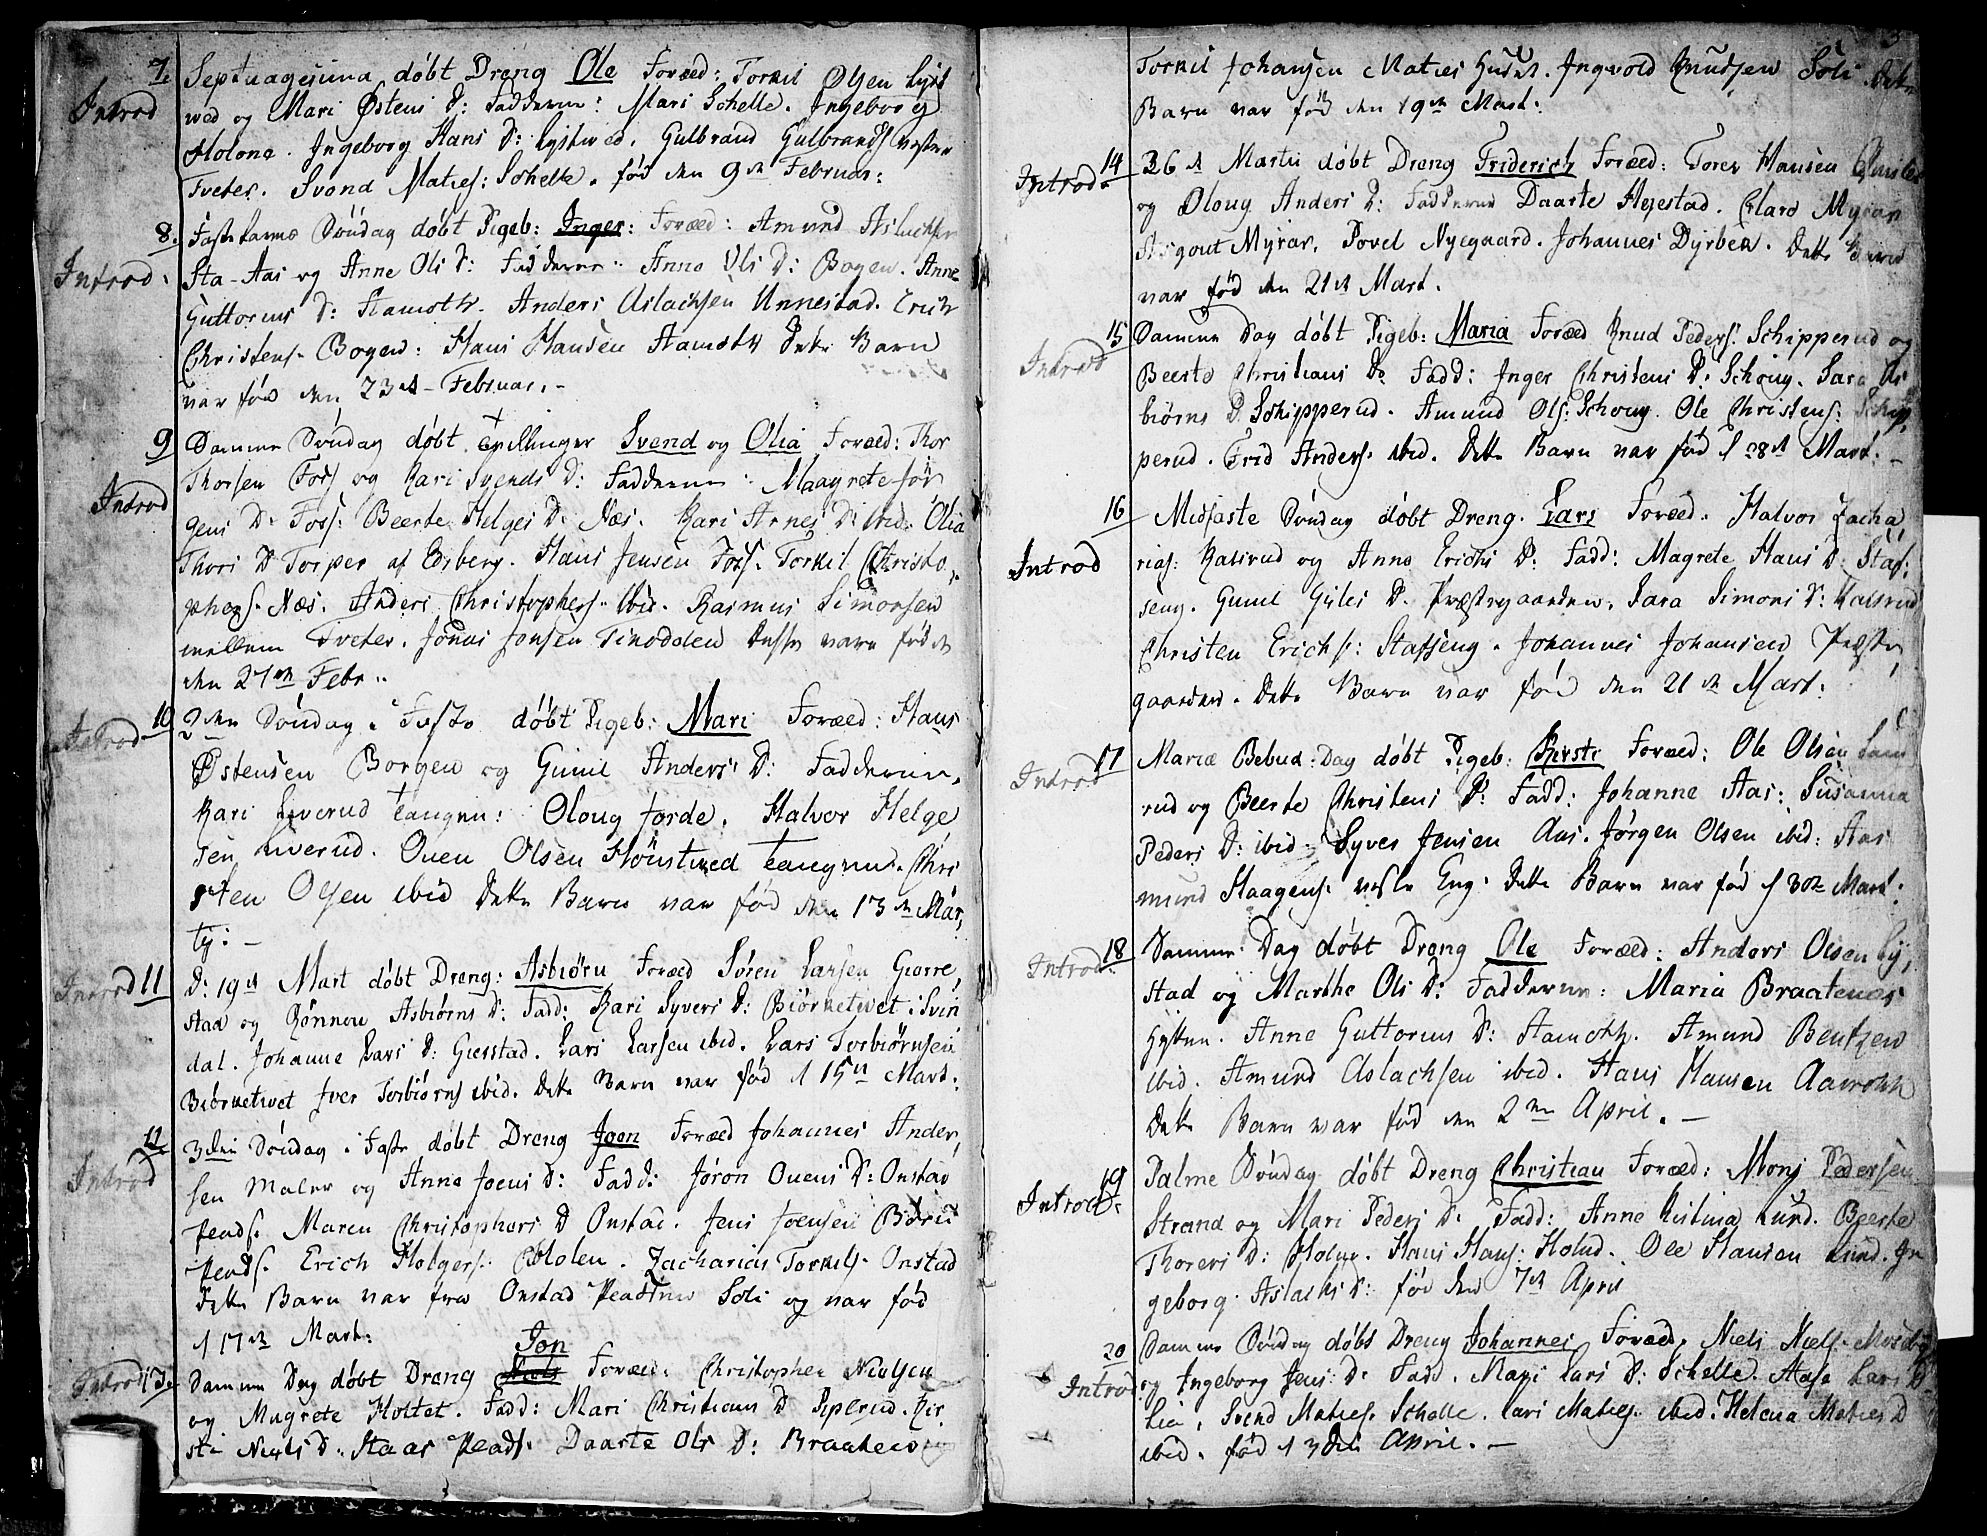 7. Septuagesima døbt Dreng Ole Foræld: Torkil Olsen Lyst
Introd
wed og Mari Østens D: Fadderne: Mari Schelle. Ingeborg
Holone. Ingeborg Hans D: Lystwed. Gulbrand Gulbrands
Tveter. Svend Maties: Schelle. fød den 9de Februar:
8. Fastelavns Søndag døbt Pigeb: Inger: Foræld: Amund Aslachsen
Introd:
Sta-Aas og Anne Ols D: Fadderne: Anne Ols D: Bogen. Anne
Guttorms D: Aamoth. Anders Aslachsen Unnestad. Erich
Christens. Bogen: Hans Hansen Aamoth Dette Barn
var fød den 23de Februar.
9 Samme Søndag døbt Tvillinger Svend og Olia Foræld: Thor
Introd
Thorsen Foss og Kari Svends D: Fadderne: Maagrete Jør
gens D. Foss: Beerte Helges D. Næs. Kari Arnes D: ibid: Olia
Thors D Torper af Edsberg. Hans Jensen Foss. Torkil Christo
phers. Næs. Anders Christophers. ibid. Rasmus Simonsen
mellem Tveter. Jonas Jonsen Tinodden Disse vare fød
den 27de Febr.
10 2den Søndag i Faste døbt Pigeb: Mari Foræld: Hans
Introd
Østensen Borgen og Gunil Anders D: Fadderne.
Kari Liverud Tangen: Oloug Jorde. Halvor Helge
sen Liverud. Ouen Olsen Tangen. Chri
sten Olsen ibid Dette Barn var fød den 13de Mar
ty:
Introd 11 D: 19de Mart døbt Dreng: Asbiørn Foræld Søren Larsen Gierre
stad og Rønnou Asbiørns D: Fadd: Kari Syvers D: Biørnetvet i Svin
dal. Johanne Lars D: Gierstad. Lars Larsen ibid. Lars Torbiørnsen
Biørnetvet Iver Torbiørns ibid. Dette Barn var fød d 15de Mart.
12 3die Søndag i Faste døbt Dreng Joen Foræld Johannes Ander
Introd
sen Maler og Anne Joens D: Fadd: Jøron Ouens D: Onstad
Pends. Maren Christophers D Onstad. Jens Joensen
Pends. Erich Holgers. Holen. Zacharias Torkils. Onstad
Dette Barn var fra Onstad Soli og var fød
d 17de Mart:
Jon
Introd 13. Samme Dag døbt Dreng Niels Foræld: Christopher Nielsen
og Magrete Holtet. Fadd: Mari Christians D Piperud. Kir
sti Niels D. Staas Pends. Daarte Ols D: Braaten
3
Torkil Johansen Maties Huset. Ingvold Knudsen Soli Dette
Barn var fød den 19de Mart:
14 26de Martii døbt Dreng Friderich Foræld: Torer Hansen
Introd.
og Oloug Anders D: Fadderne Daarte Hejestad. Claro Myrar
Asgout Myrar. Povel Nyegaard. Johannes Dyrbek. Dette Barn
var fød den 21de Mart.
15 Samme Dag døbt Pigeb: Maria Foræld Knud Peders. Schipperud og
Introd
Beerte Christians D: Fadd: Inger Christens D: Schoug. Sara As
biørns D. Schipperud. Amund Ols: Schoug. Ole Christens: Schip
perud. Erid Anders. ibid. Dette Barn var fød d 28de Mart.
16 Midfaste Søndag døbt Dreng. Lars Foræld. Halvor Zacha
Introd
rias: Kalsrud og Anne Erichs D: Fadd: Magrete Hans D. Staf
seng. Gunil Giles D. Præstegaarden. Sara Simons D: Kalsrud
Christen Erichs: Stafseng. Johannes Johansen Præste
gaarden. Dette Barn var fød den 21de Mart:
17 Mariæ Bebud: Dag døbt Pigeb: Kirste Foræld: Ole Olsen
Introd
rud og Beerte Christens D: Fadd: Johanne Aas: Susanna
Peders D: ibid. Syver Jensen Aas. Jørgen Olsen ibid: Aas
mund Haagens. vestre Eng. Dette Barn var fød d 30te Mart.
18 Samme Dag døbt Dreng Ole Foræld: Anders Olsen
Introd:
stad og Marthe Ols D: Fadderne: Maria Braatenes
Hytten. Anne Guttorms D: Aamoth. Amund Bentzen
ibid. Amund Aslachsen ibid. Hans Hansen Aamoth
Dette Barn var fød den 2den April.
19 Palme Søndag døbt Dreng Christian Foræld: Mons Pedersen
Introd:
Strand og Mari Peders D: Fadd: Anne Kistina Lund. Beerte
Thorers D: Holm. Hans Hans: Holm. Ole Hansen Lund. In
geborg Aslachs D: fød den 7de April
20 Samme Søndag døbt Dreng Johannes Foræld. Niels Niels. Moseby
Introd
og Ingeborg Jens D. Fadd. Mari Lars D: Schelle. Aase Lars D
Lie. Svend Maties. Schelle. Lars Maties. ibid. Helena Maties D
ibid. fød d 3die April.